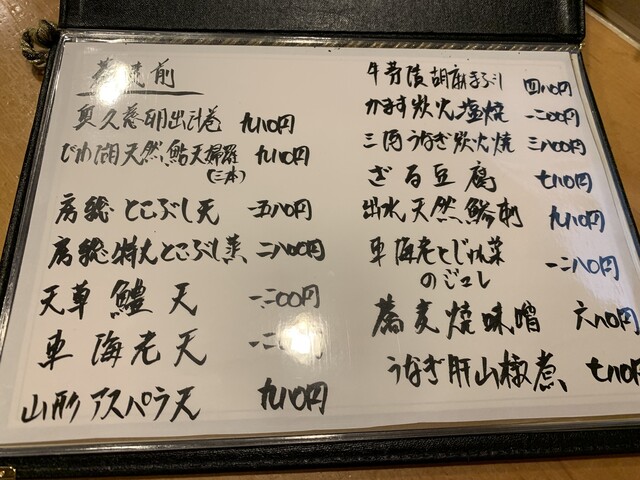 蕎流前
奥久慈卵出汁巻 九八〇円
びわ湖天然鮎天婦羅 九八〇円
(三本)
房総とこぶし天 五八〇円
房総特大とこぶし蒸 二八〇〇円
天草鱧天 一二〇〇円
車海老天
山形アスパラ天 九八〇円
牛蒡後胡麻まぶし 四八〇円
かます炭火塩焼 一二〇〇円
三河うなぎ炭火焼 三八〇〇円
ざる豆腐 七八〇円
出水天然鯵刺 九八〇円
車海老とじゅん菜 一二八〇円
のジュレ
蕎麦焼味噌 六八〇円
うなぎ肝山椒煮 七八〇円